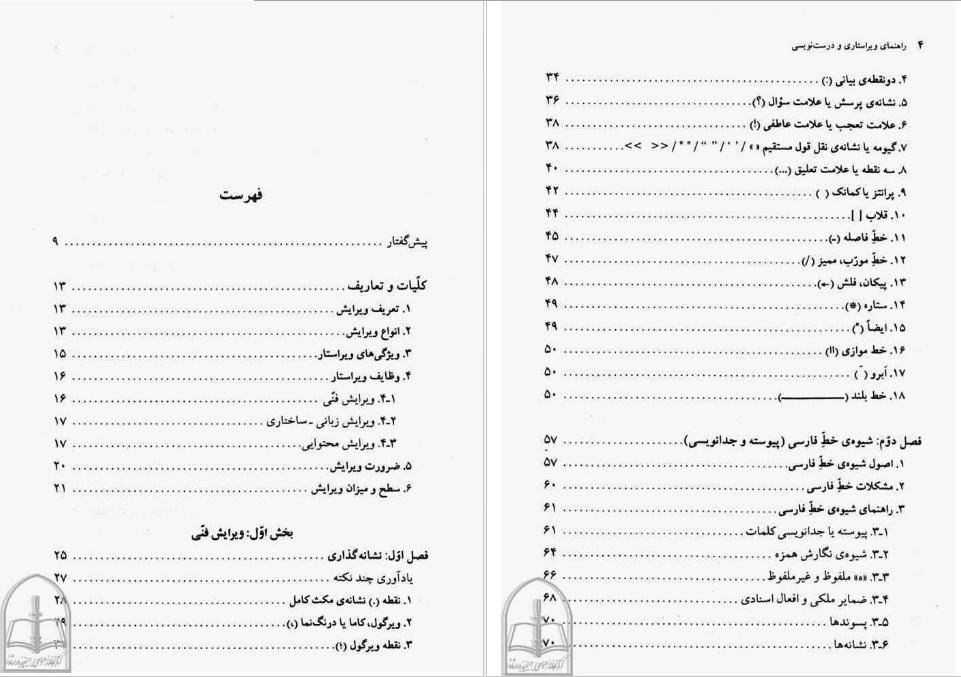 فهرست
پیش‌گفتار ........ ۹
کلّیات و تعاریف ........ ۱۳
۱. تعریف ویرایش ........ ۱۳
۲. انواع ویرایش ........ ۱۳
۳. ویژگی‌های ویراستار ........ ۱۵
۴. وظایف ویراستار ........ ۱۶
۴ـ۱. ویرایش فنّی ........ ۱۶
۴ـ۲. ویرایش زبانی ـ ساختاری ........ ۱۷
۴ـ۳. ویرایش محتوایی ........ ۱۷
۵. ضرورت ویرایش ........ ۲۰
۶. سطح و میزان ویرایش ........ ۲۱
بخش اوّل: ویرایش فنّی
فصل اوّل: نشانه‌گذاری ........ ۲۵
یادآوری چند نکته ........ ۲۷
۱. نقطه (.) نشانه‌ی مکث کامل ........ ۲۸
۲. ویرگول، کاما یا درنگ‌نما (،) ........
۳. نقطه ویرگول (؛) ........
۴ راهنمای ویراستاری و درست‌نویسی
۴. دونقطه‌ی بیانی (:) ........ ۳۴
۵. نشانه‌ی پرسش یا علامت سؤال (؟) ........ ۳۶
۶. علامت تعجب یا علامت عاطفی (!) ........ ۳۸
۷. گیومه یا نشانه‌ی نقل قول مستقیم « » / ‘ ’ / “ ” / " " / << >> ........ ۳۸
۸. سه نقطه یا علامت تعلیق (...) ........ ۴۰
۹. پرانتز یا کمانک ( ) ........ ۴۲
۱۰. قلاب [ ] ........ ۴۴
۱۱. خطِّ فاصله (-) ........ ۴۵
۱۲. خطِّ مورّب، ممیز (/) ........ ۴۷
۱۳. پیکان، فلش (←) ........ ۴۸
۱۴. ستاره (*) ........ ۴۹
۱۵. ایضاً (") ........ ۴۹
۱۶. خط موازی (II) ........ ۵۰
۱۷. اَبرو ( ّ ) ........ ۵۰
۱۸. خط بلند (ــــــــــ) ........ ۵۰
فصل دوّم: شیوه‌ی خطِّ فارسی (پیوسته و جدانویسی) ........ ۵۷
۱. اصول شیوه‌ی خطِّ فارسی ........ ۵۷
۲. مشکلات خطِّ فارسی ........ ۶۰
۳. راهنمای شیوه‌ی خطِّ فارسی ........ ۶۱
۳ـ۱. پیوسته یا جدانویسی کلمات ........ ۶۱
۳ـ۲. شیوه‌ی نگارش همزه ........ ۶۴
۳ـ۳. «ه» ملفوظ و غیرملفوظ ........ ۶۶
۳ـ۴. ضمایر ملکی و افعال اسنادی ........ ۶۸
۳ـ۵. پسوندها ........ ۷۰
۳ـ۶. نشانه‌ها ........ ۷۰